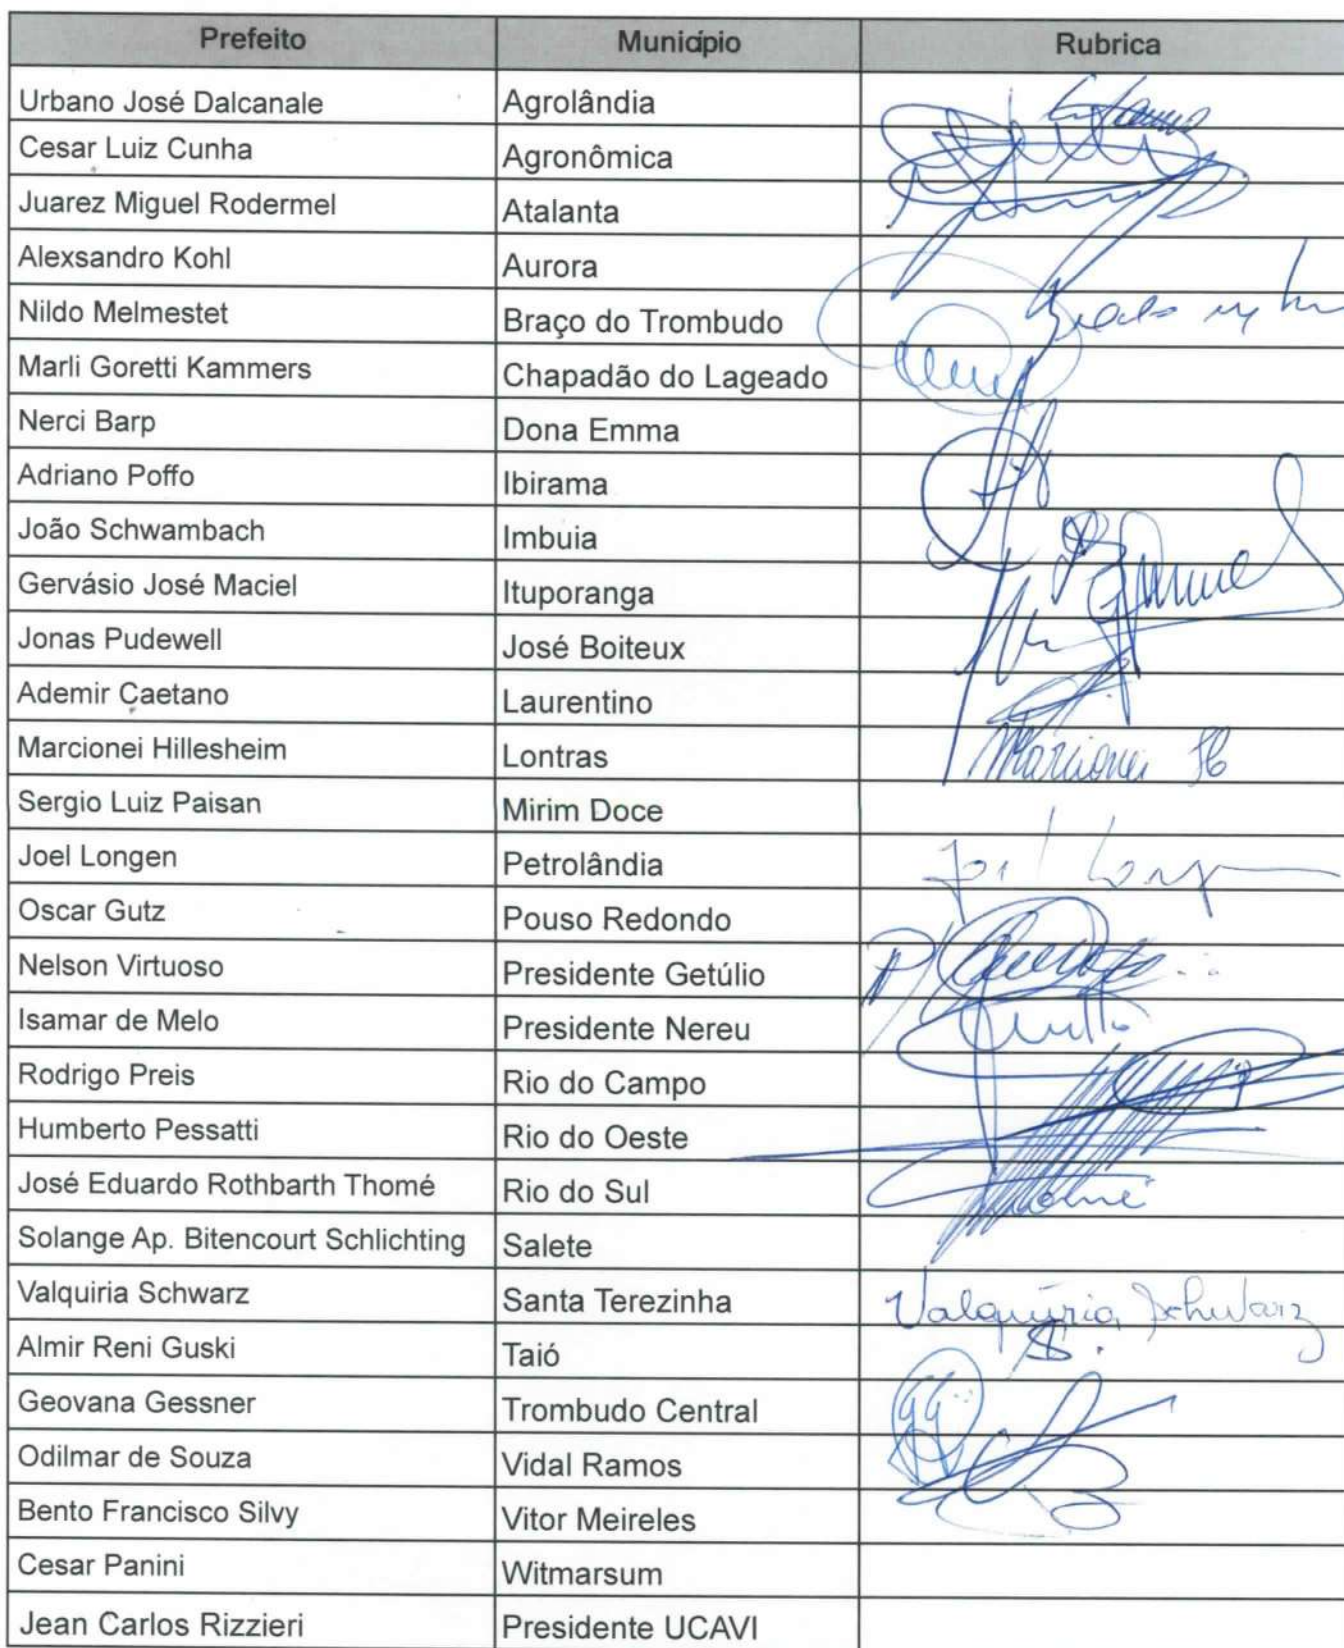 Prefeito Município Rubrica
Urbano José Dalcanale Agrolândia
Cesar Luiz Cunha Agronômica
Juarez Miguel Rodermel Atalanta
Alexsandro Kohl Aurora
Nildo Melmestet Braço do Trombudo
Marli Goretti Kammers Chapadão do Lageado
Nerci Barp Dona Emma
Adriano Poffo Ibirama
João Schwambach Imbuia
Gervásio José Maciel Ituporanga
Jonas Pudewell José Boiteux
Ademir Caetano Laurentino
Marcionei Hillesheim Lontras Marcionei H
Sergio Luiz Paisan Mirim Doce
Joel Longen Petrolândia
Oscar Gutz Pouso Redondo
Nelson Virtuoso Presidente Getúlio
Isamar de Melo Presidente Nereu
Rodrigo Preis Rio do Campo
Humberto Pessatti Rio do Oeste
José Eduardo Rothbarth Thomé Rio do Sul
Solange Ap. Bitencourt Schlichting Salete
Valquiria Schwarz Santa Terezinha Valquíria Schwarz
Almir Reni Guski Taió
Geovana Gessner Trombudo Central
Odilmar de Souza Vidal Ramos
Bento Francisco Silvy Vitor Meireles
Cesar Panini Witmarsum
Jean Carlos Rizzieri Presidente UCAVI